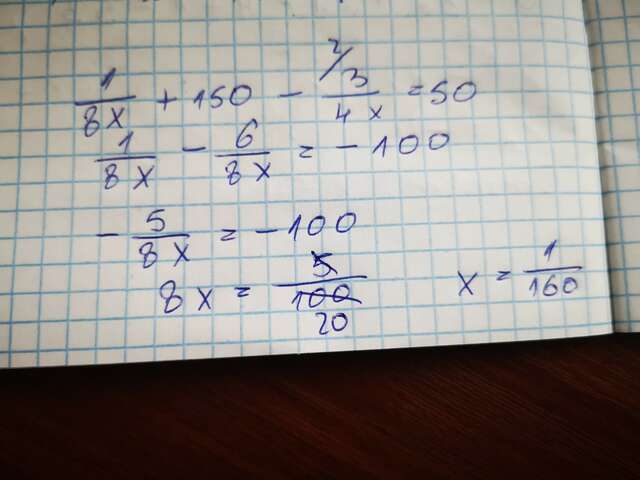 1/8x + 150 - 2/3/4x = 50
1/8x - 6/8x = -100
-5/8x = -100
8x = 5/100 20 x = 1/160